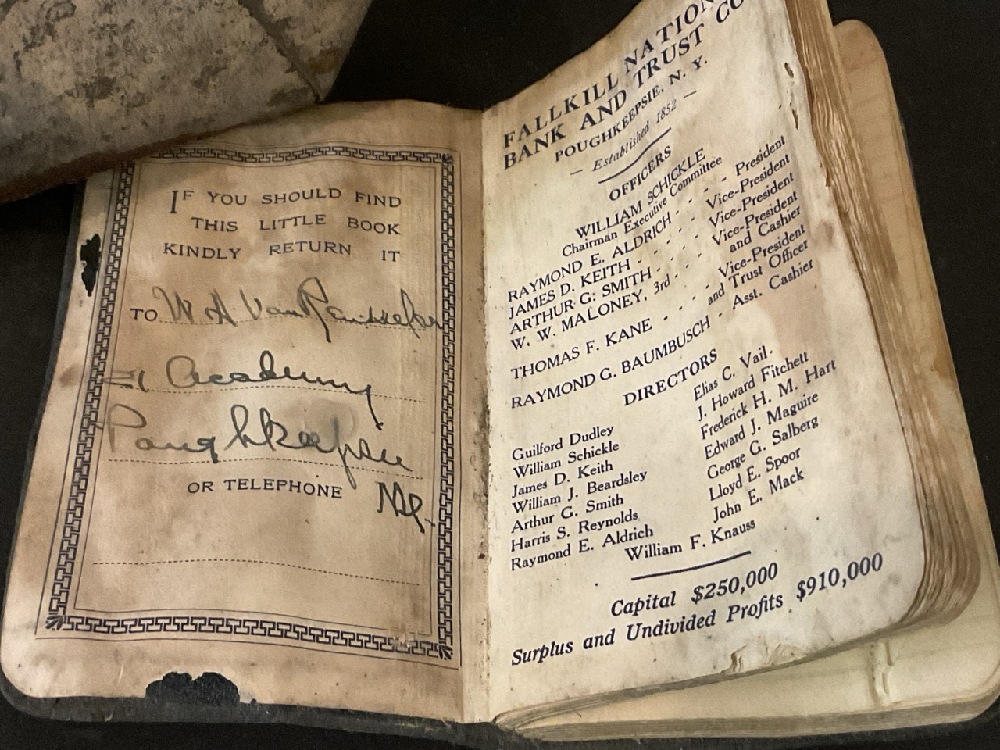 IF YOU SHOULD FIND
THIS LITTLE BOOK
KINDLY RETURN IT
TO W A Van
Academy
Poughkeepsie
OR TELEPHONE
FALLKILL NATION
BANK AND TRUST CO
POUGHKEEPSIE, N. Y.
— Established 1852 —
OFFICERS
WILLIAM SCHICKLE
Chairman Executive Committee
RAYMOND E. ALDRICH - - - President
JAMES D. KEITH - - - Vice-President
ARTHUR G. SMITH - - - Vice-President
W. W. MALONEY, 3rd - - - Vice-President
and Cashier
THOMAS F. KANE - - - Vice-President
and Trust Officer
RAYMOND G. BAUMBUSCH - Asst. Cashier
DIRECTORS
Guilford Dudley Elias C. Vail
William Schickle J. Howard Fitchett
James D. Keith Frederick H. M. Hart
William J. Beardsley Edward J. Maguire
Arthur G. Smith George G. Salberg
Harris S. Reynolds Lloyd E. Spoor
Raymond E. Aldrich John E. Mack
William F. Knauss
Capital $250,000
Surplus and Undivided Profits $910,000